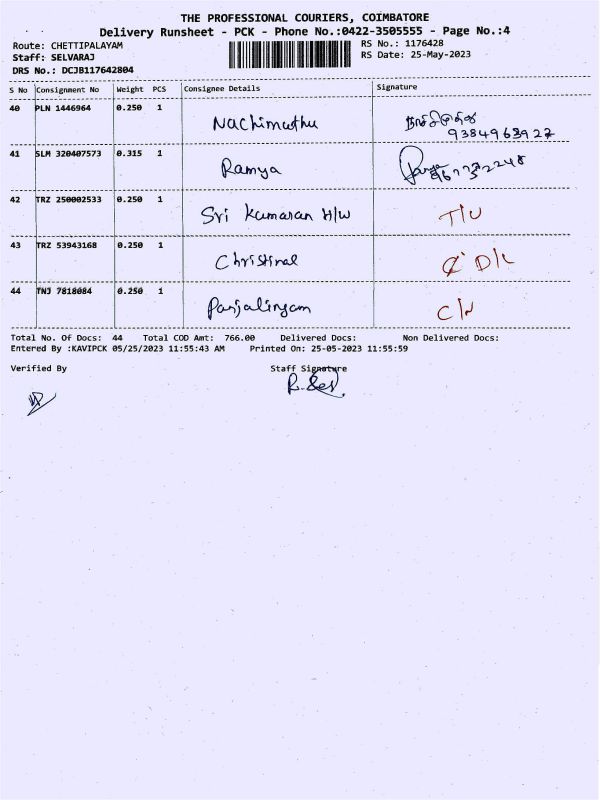 THE PROFESSIONAL COURIERS, COIMBATORE
Delivery Runsheet - PCK - Phone No.:0422-3505555 - Page No.:4
Route: CHETTIPALAYAM
Staff: SELVARAJ
DRS No.: DCJB117642804
RS No.: 1176428
RS Date: 25-May-2023
S No Consignment No Weight PCS Consignee Details Signature
40 PLN 1446964 0.250 1 Nachimuthu
9384963927
41 SLM 320407573 0.315 1 Ramya
42 TRZ 250002533 0.250 1 Sri Kumaran H/W T/U
43 TRZ 53943168 0.250 1 Christinal D/L
44 TNJ 7818084 0.250 1 Panjalingam C/N
Total No. Of Docs: 44 Total COD Amt: 766.00 Delivered Docs: Non Delivered Docs:
Entered By :KAVIPCK 05/25/2023 11:55:43 AM Printed On: 25-05-2023 11:55:59
Verified By Staff Signature